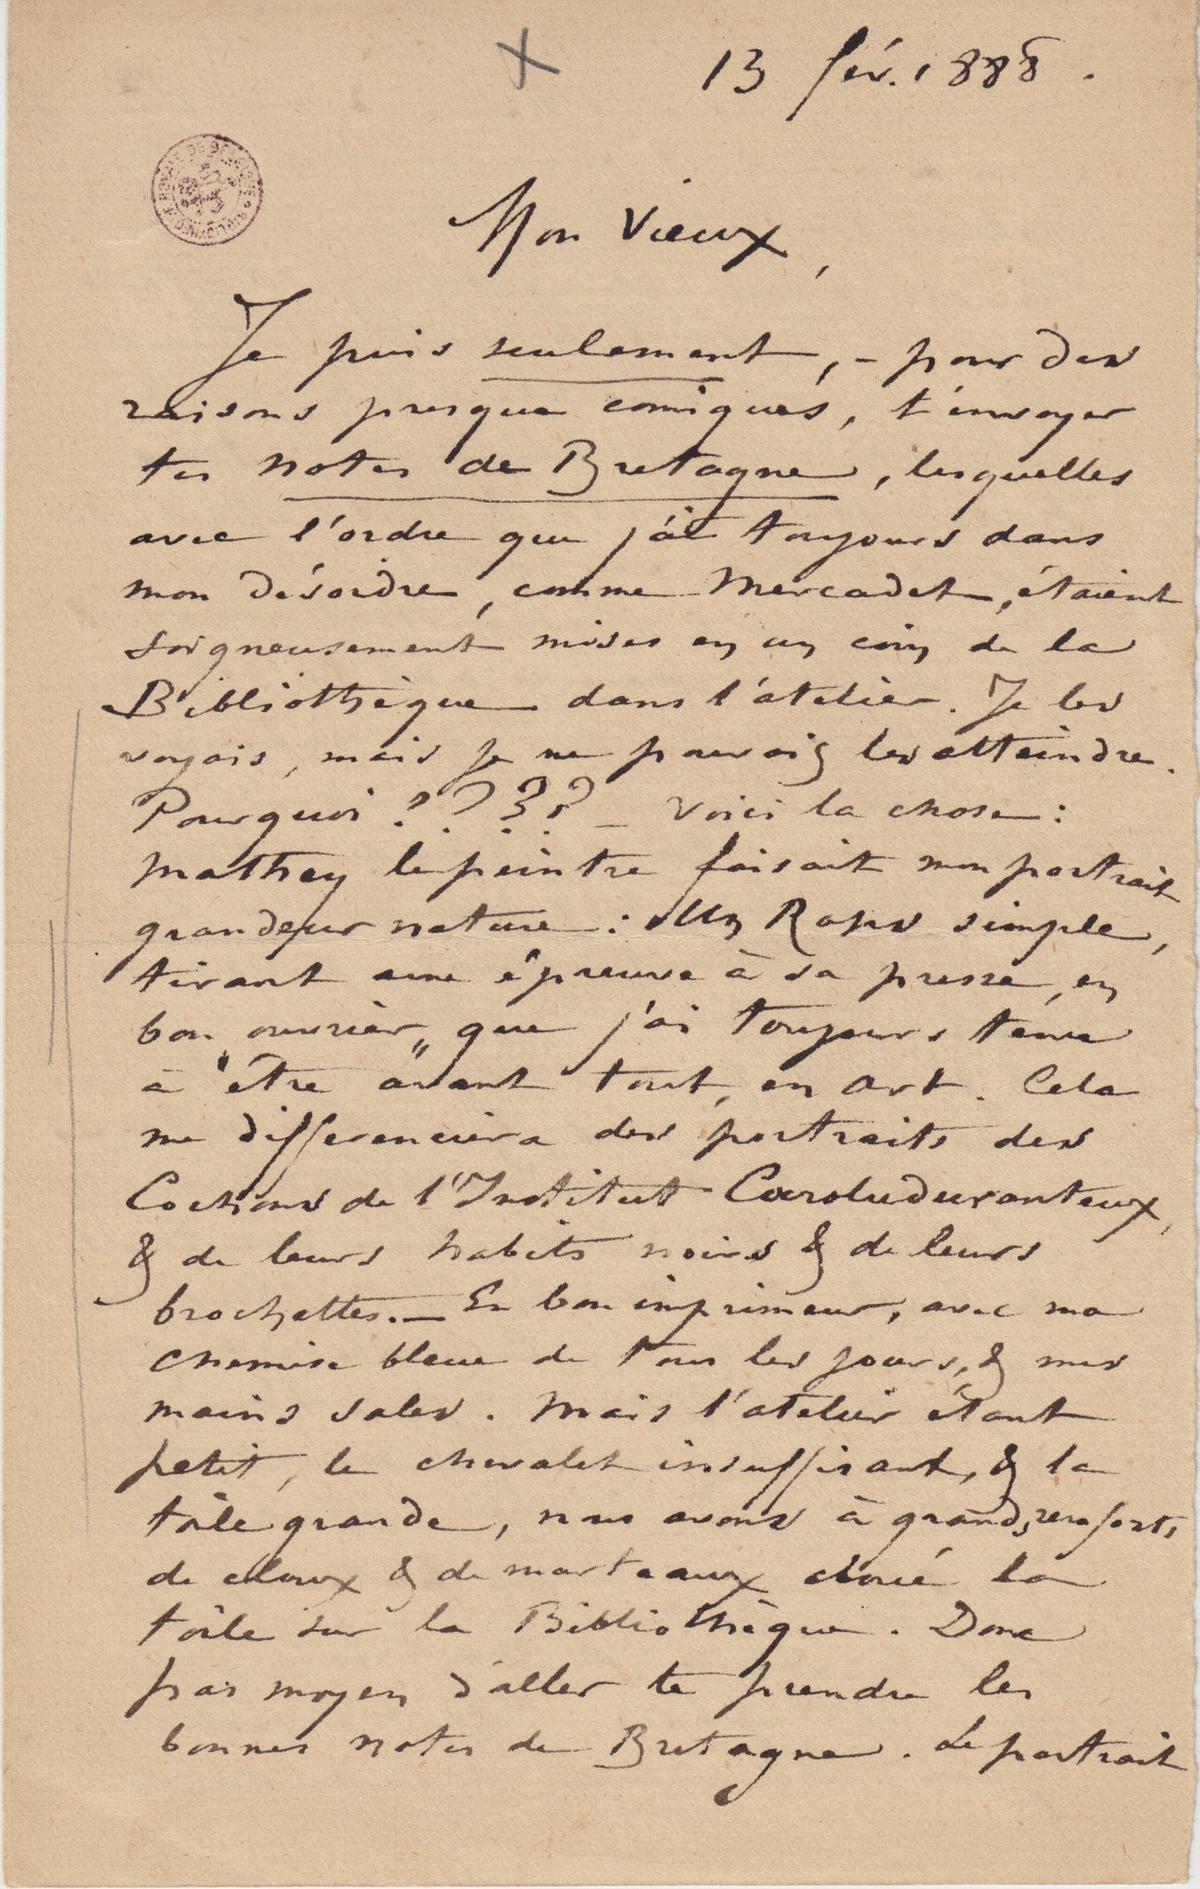 13 fév. 1888.
Mon Vieux,
Je puis seulement, – pour des
raisons presque comiques, t'envoyer
tes notes de Bretagne, lesquelles
avec l'ordre que j'ai toujours dans
mon désordre, comme Mercadet, étaient
soigneusement mises en un coin de la
Bibliothèque dans l'atelier. Je les
voyais, mais je ne pouvais les atteindre.
Pourquoi ???? – Voici la chose:
Mathey le peintre faisait mon portrait
grandeur nature: Un Rops simple,
tirant une épreuve à sa presse, en
bon ouvrier„ que j'ai toujours tenu
à "être avant tout, en art. Cela
me differenciera des portraits des
Cochons de l'Institut Caroluduranteux,
& de leurs habits noirs & de leurs
brochettes. — En bon imprimeur, avec ma
chemise bleue de tous les jours, & mes
mains sales. Mais l'atelier étant
petit, le chevalet insuffisant, & la
toile grande, nous avons à grands renforts
de cloux & de marteaux cloué la
toile sur la Bibliothèque. Donc
pas moyen d'aller te prendre les
bonnes notes de Bretagne. Le portrait